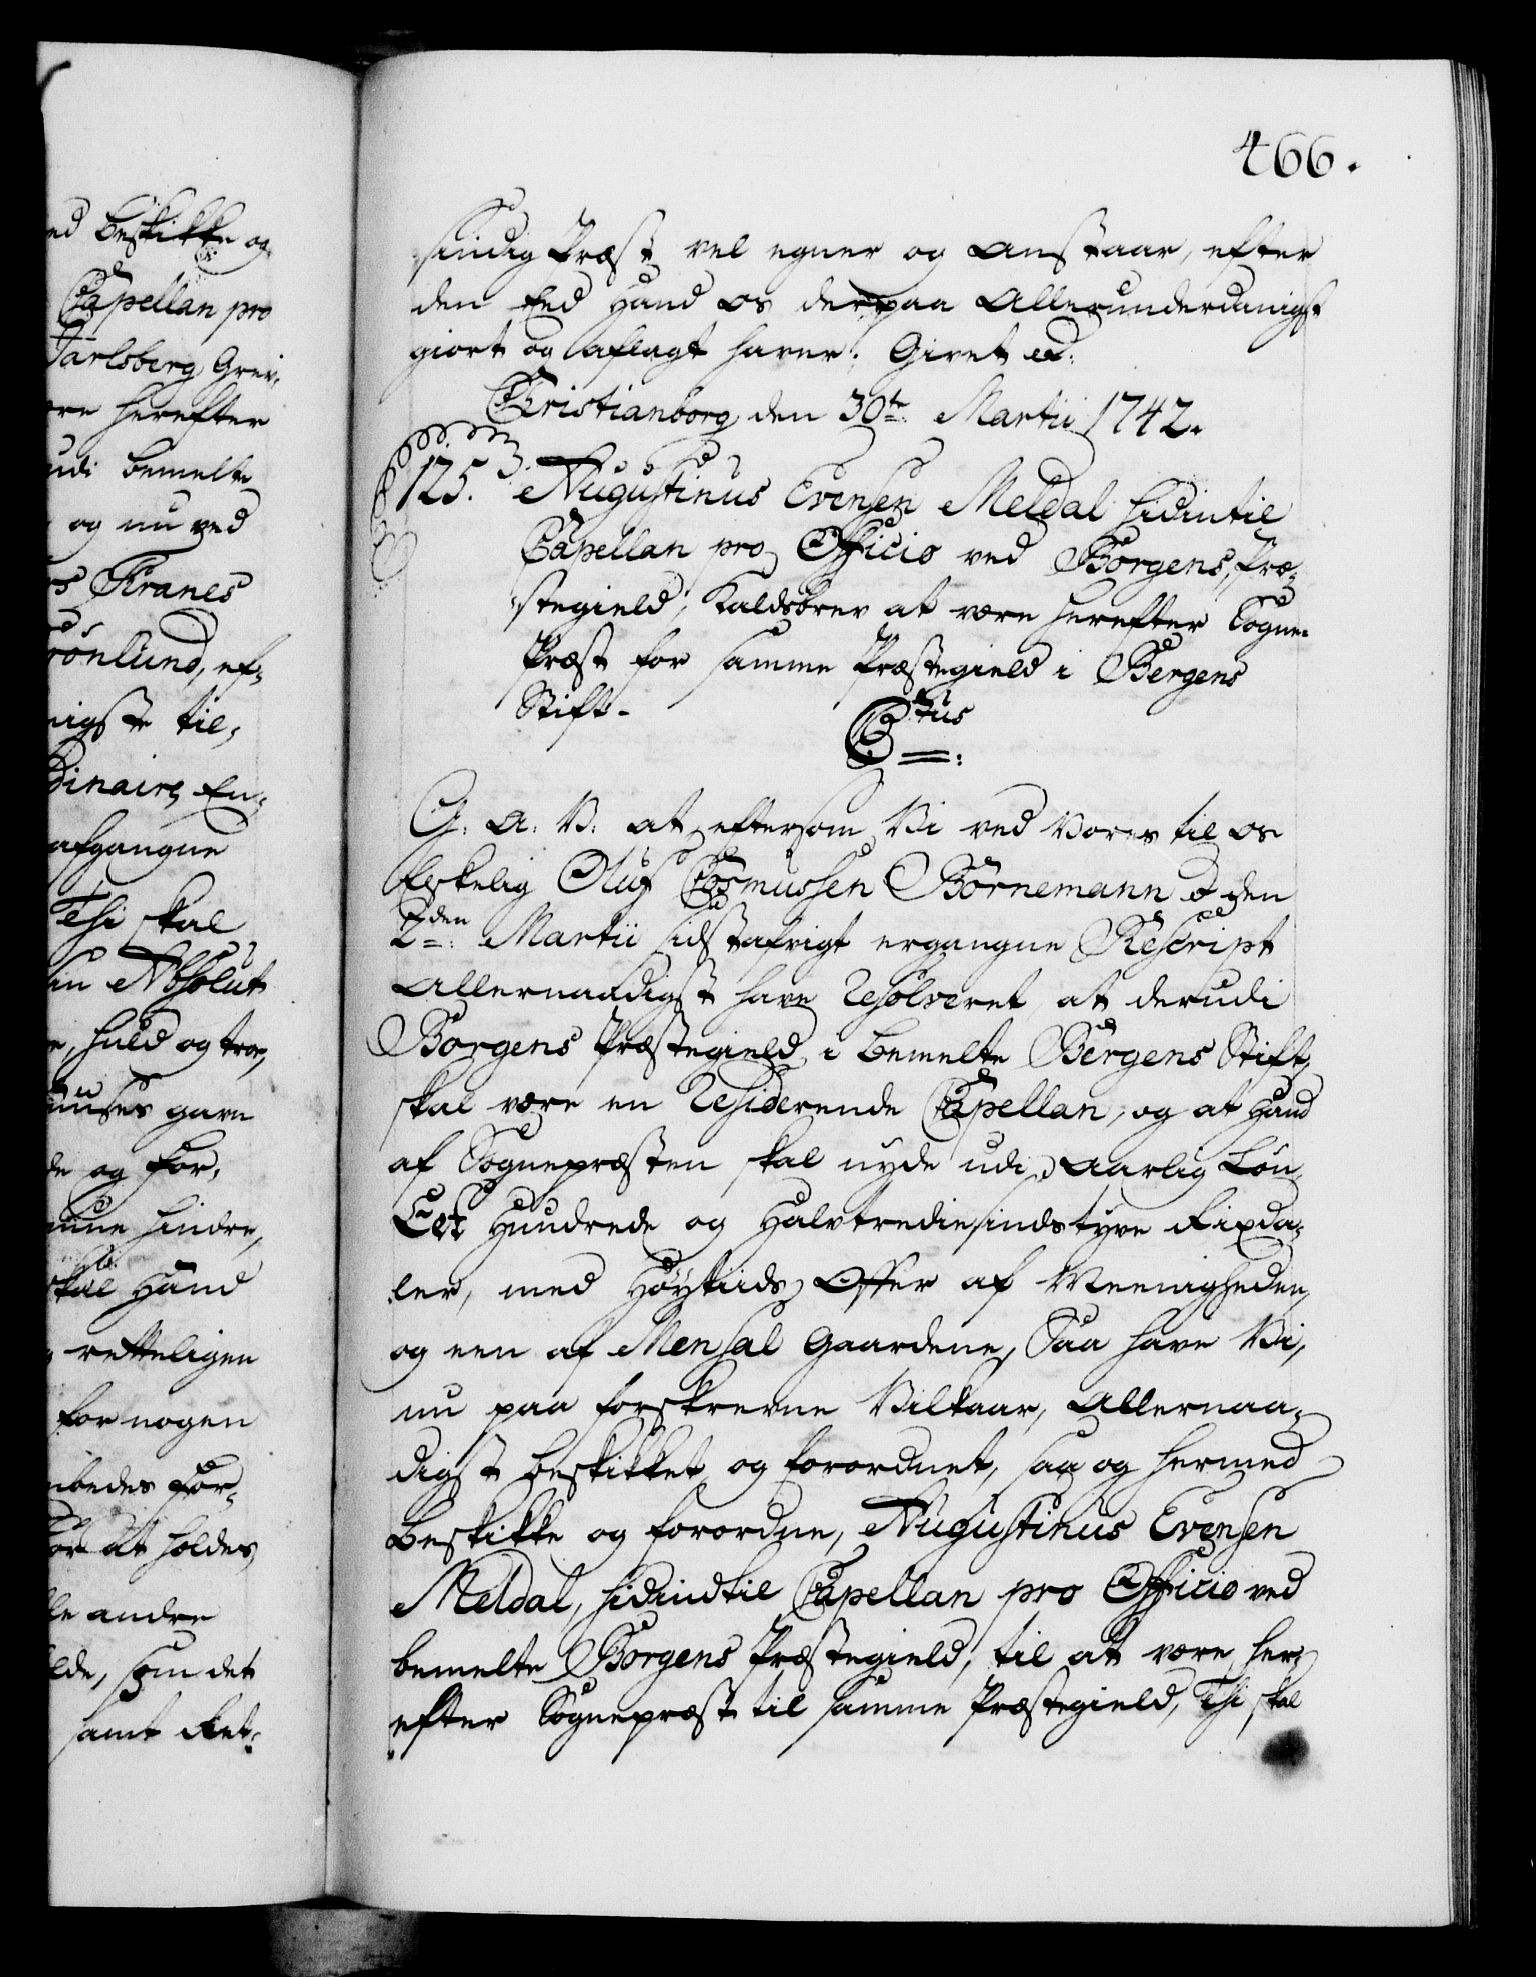 466.
sindig Præst vel egner og anstaar, efter
den Eed Hand os derpaa Allerunderdanigst
giort og aflagt haver. Givet &:
Christianborg den 30te Martii 1742.
125. Augustinus Evensen Meldal hidintil
Capellan pro Officio ved Borgens Præ-
stegield, Kaldsbrev at være herefter Sogne-
Præst for samme Præstegield i Bergens
Stift.
Ctus
G. A. V. at eftersom Vi ved Vores til os
Elskelig Oluf Cosmussen Bornemann d den
2den Martii sidstafvigt ergangne Rescript
Allernaadigst have Resolveret, at derudi
Borgens Præstegield i bemelte Bergens Stift,
skal være en Residerende Capellan, og at Hand
af Sognepræsten skal nyde udi Aarlig Løn
Eet Hundrede og Halvtrediesindstyve Rixda-
ler, med Høytids Offer af Meenigheden,
og een af Mensal Gaardene, Saa have Vi,
nu paa forskrevne Vilkaar, Allernaa-
digst beskikket og forordnet, saa og hermed
beskikke og forordne, Augustinus Evensen
Meldal, hidindtil Capellan pro Officio ved
bemelte Borgens Præstegield, til at være her-
efter Sognepræst til samme Præstegield, Thi skal
ed beskikke og
Capellan pro
Jarlsberg Grev-
ere herefter
udi bemelte
og nu ved
Kranes
rönlund, ef-
nigste til,
dinaire En-
afgangne
Thi skal
Absolut
huld og troe,
uuses gavn
de og for-
hindre,
skal Hand
retteligen
for nogen
mbedes for-
at holdes
lle andre
lde, som det
samt Ret-